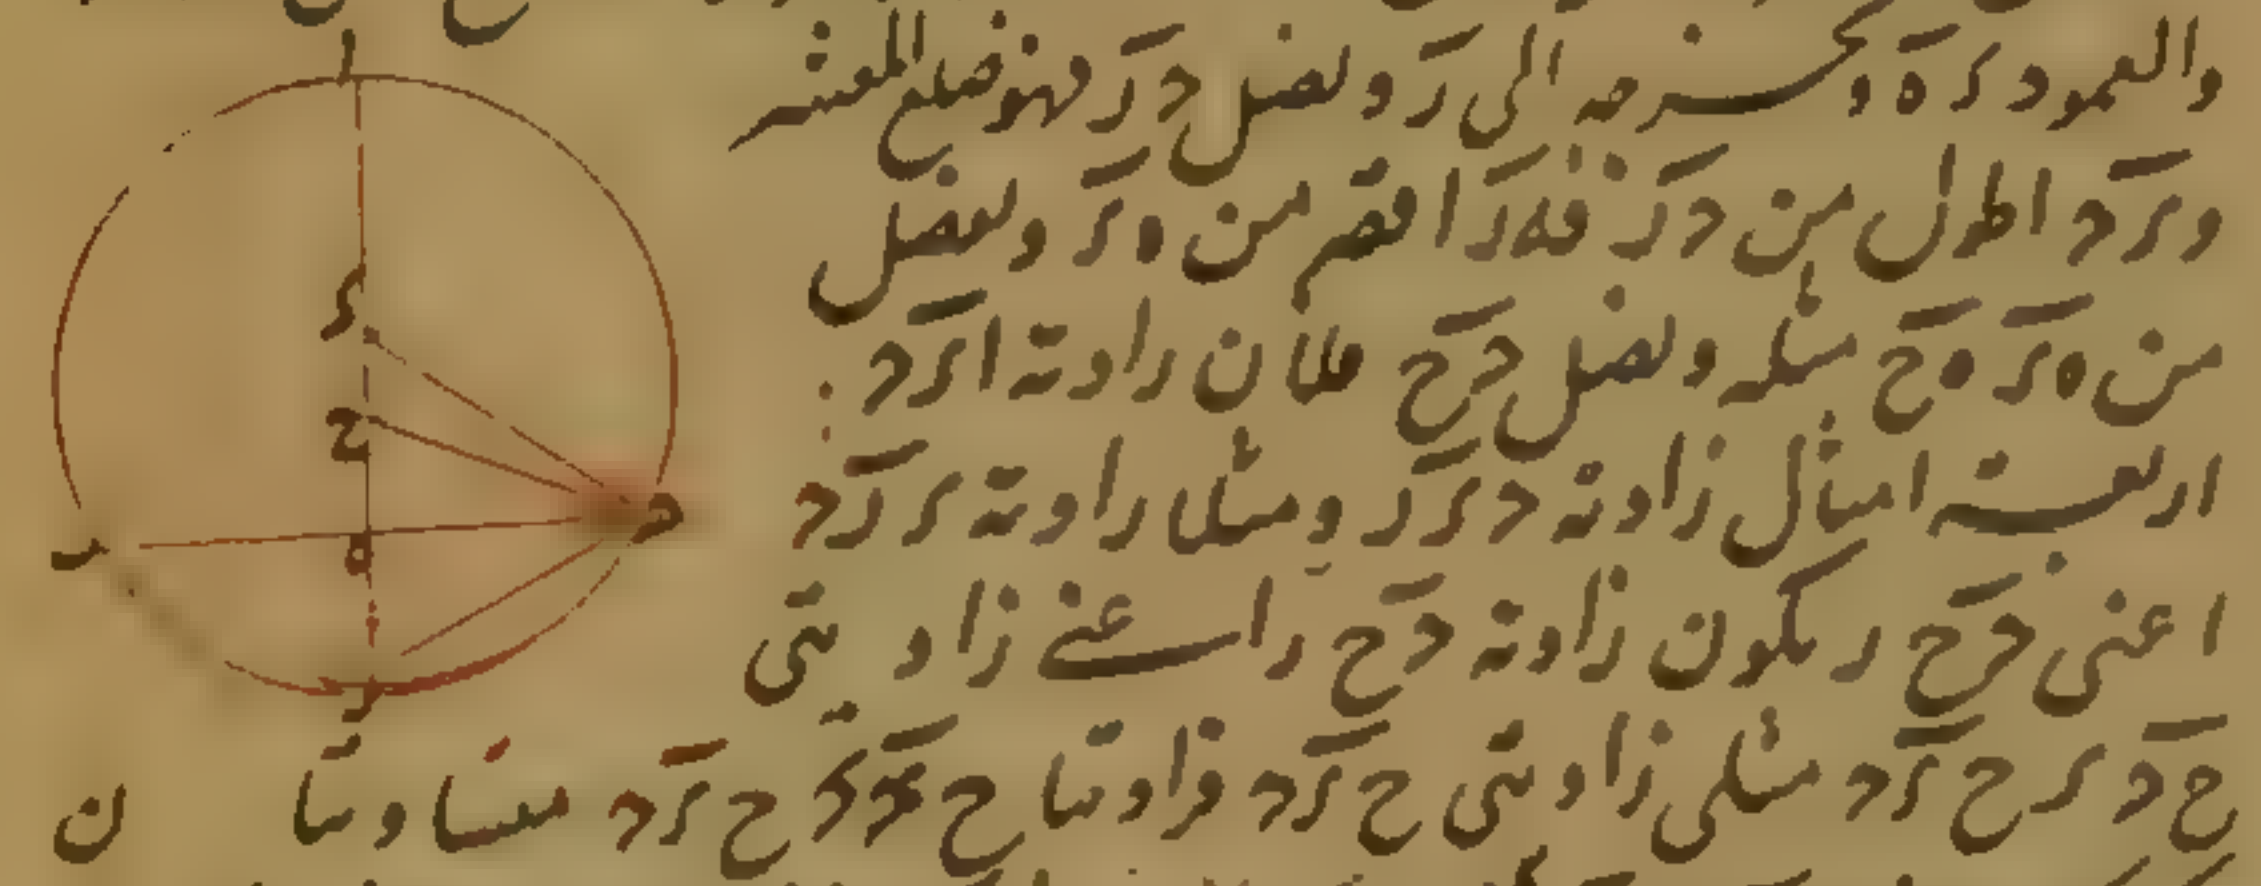 والعمود ك ه ونخرجه الى ر ونصل د ر فهو ضلع المعشر
و ك د اطول من د ر فه ر اقصر من ه ك ونفصل
من ه ك ه ح مثله ونصل د ح فلان زاوية ا ك د
اربعة امثال زاوية د ك ر ومثلا زاوية ك ر د
اعنى د ح ر يكون زاوية د ح ر اعنى زاويتى
ح د ك ح ك د مثلى زاويتى ح ك د فزاويتا ح د ك ح ك د متساويتان
ا
ك
ح
د
ه
ر